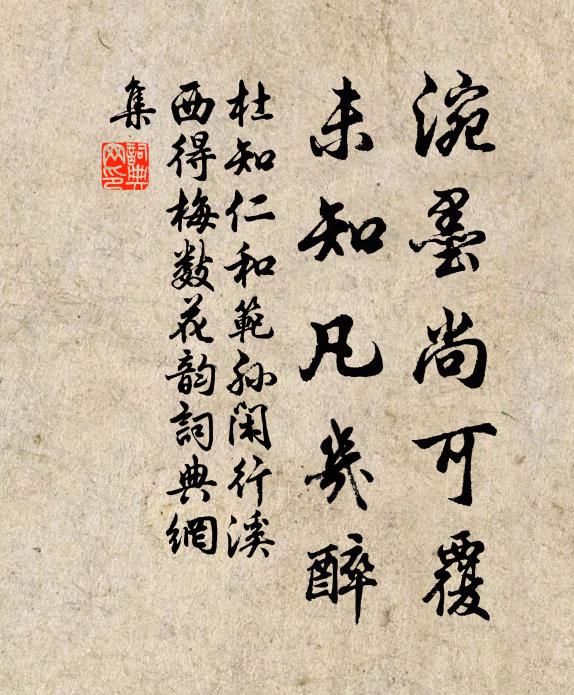 涴墨尚可覆
未知凡幾醉
杜知仁和範孫閑行溪
西得梅數花韵詞典網
集
詞典網印